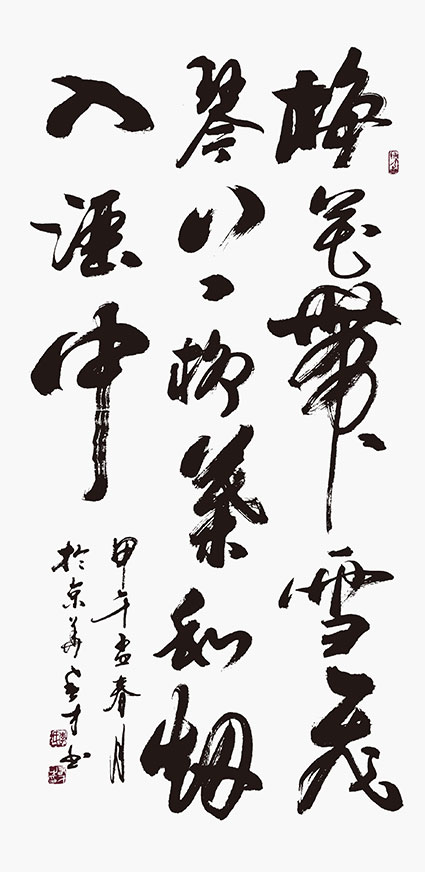 梅花帶雪飛
琴上柳葉和烟
入酒中
甲午孟春月
於京華才书